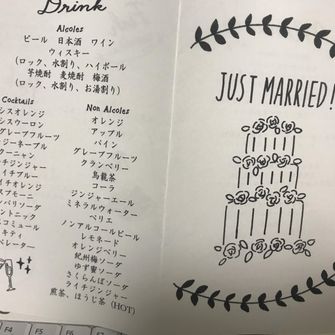 Drink
Alcoles
ビール 日本酒 ワイン
ウィスキー
(ロック、水割り、ハイボール
芋焼酎 麦焼酎 梅酒
(ロック、水割り、お湯割り)
Cocktails
シスオレンジ
シスウーロン
グレープフルーツ
ジーネーブル
クーニャン
チジンジャー
イチブルー
イチオレンジ
スプモーニ
ンパリソーダ
ントニック
スコミュール
キティ
ベレーター
Non Alcoles
オレンジ
アップル
パイン
グレープフルーツ
クランベリー
烏龍茶
コーラ
ジンジャーエール
ミネラルウォーター
ペリエ
ノンアルコールビール
レモネード
オレンジベリー
紀州梅ソーダ
ゆず蜜ソーダ
さくらんぼソーダ
ライチジンジャー
煎茶、ほうじ茶 (HOT)
JUST MARRIED!
F4
F5
F6
F7